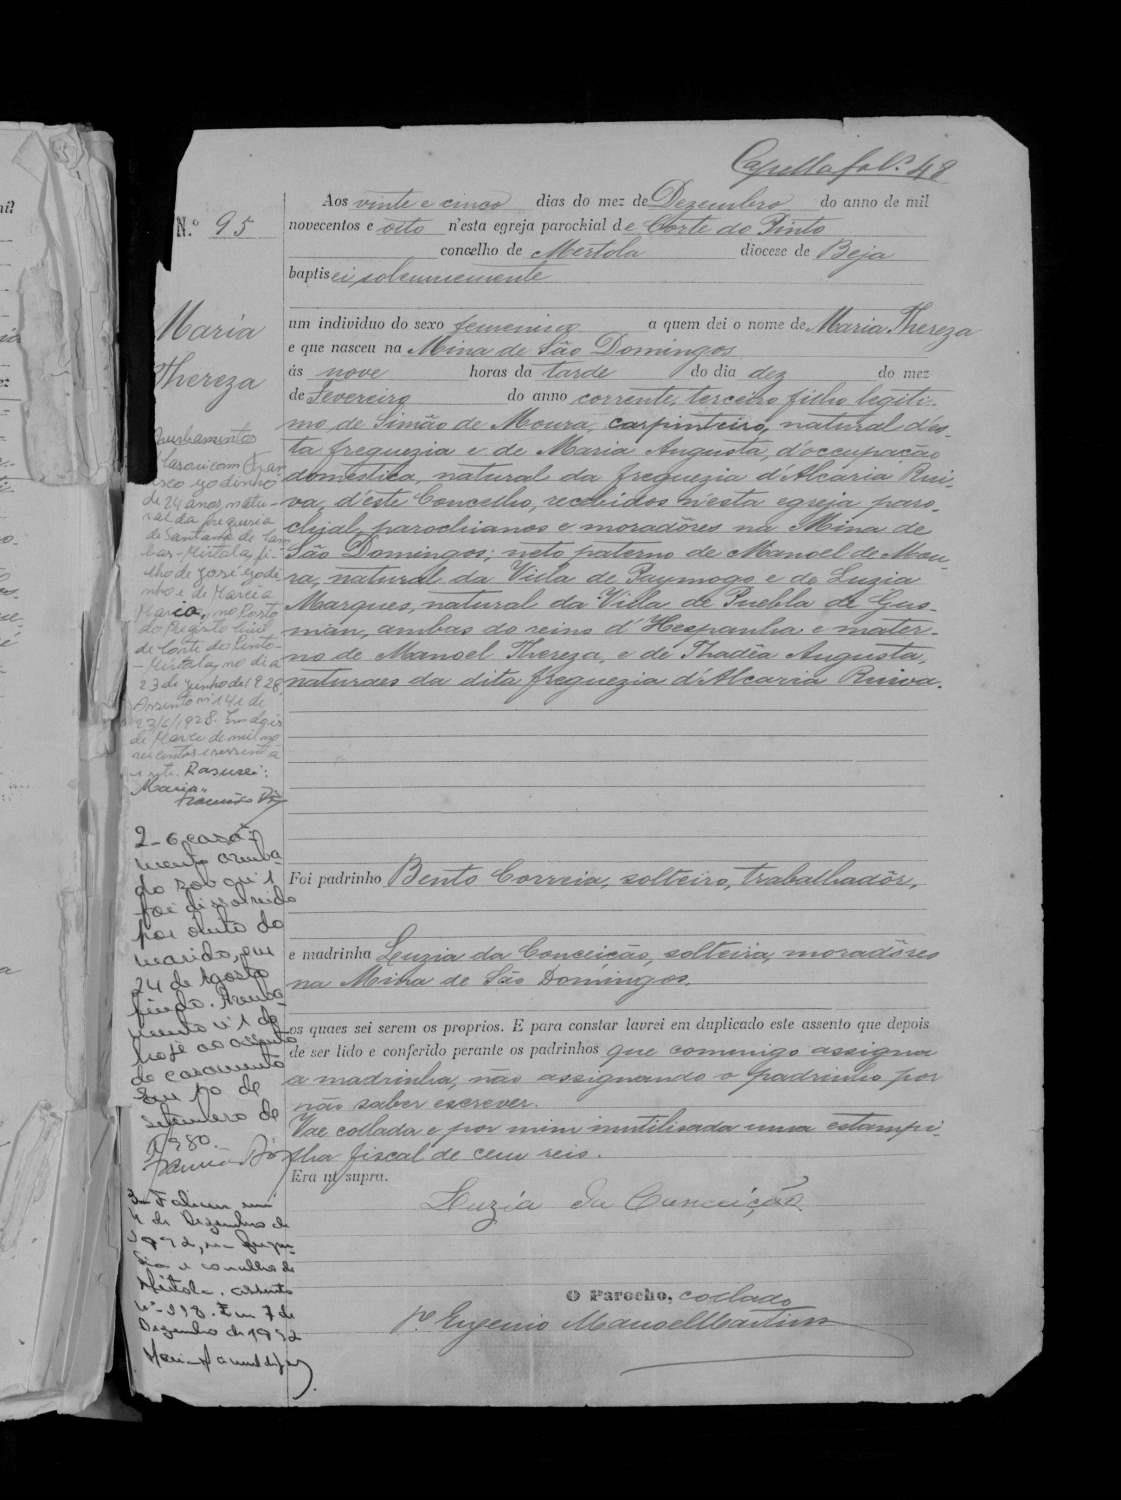 Capella fol.s 48
N.º 95
Maria
Thereza
Aos vinte e cinco dias do mez de Dezembro do anno de mil
novecentos e oito n'esta egreja parochial de Corte do Pinto
concelho de Mertola diocese de Beja
baptisei solemnemente
um individuo do sexo femenino a quem dei o nome de Maria Thereza
e que nasceu na Mina de São Domingos
ás nove horas da tarde do dia dez do mez
de Fevereiro do anno corrente, terceiro filho legiti-
mo de Simão de Moura, carpinteiro, natural d'es-
ta freguezia e de Maria Augusta, d'occupação
domestica, natural da freguezia d'Alcaria Rui-
va, d'este Concelho, recebidos n'esta egreja paro-
chial, parochianos e moradôres na Mina de
São Domingos; neto paterno de Manoel de Mou-
ra, natural da Villa de Paymogo e de Luzia
Marques, natural da Villa de Puebla de Gus-
mán, ambas do reino d'Hespanha e mater-
no de Manoel Thereza, e de Thadêa Augusta,
naturaes da dita freguezia d'Alcaria Ruiva.
Foi padrinho Bento Correia, solteiro, trabalhadôr,
e madrinha Luzia da Conceição, solteira, moradôres
na Mina de São Domingos.
os quaes sei serem os proprios. E para constar lavrei em duplicado este assento que depois
de ser lido e conferido perante os padrinhos que commigo assigna
a madrinha, não assignando o padrinho, por
não saber escrever.
Vae collada e por mim inutilisada uma estampi-
lha fiscal de cem reis.
Era ut supra.
Luzia da Conceição
O Parocho, collado
Pe Eugenio Manoel Martins
casou com Fran
cisco Godinho
de 24 anos, natu-
ral da freguesia
de Santana de Cam
bas - Mértola, fi-
lho de José Godi
nho e de Marcia
Maria, no Posto
do Registo Civil
de Corte do Pinto -
- Mértola, no dia
23 de junho de 1928,
Assento nº 141 de
23/6/1928. Em dois
de Março de mil no
vecentos e sessenta
e sete. Rasurei:
Maria
2 - O casa-
mento averba
do sob o nº 1
foi dissolvido
por óbito do
marido, em
24 de Agosto
findo. Averba-
mento nº 1 de
hoje ao assento
de casamento
Em 10 de
Setembro de
1980.
3 - Faleceu em
4 de Dezembro de
1992, na fregue-
sia e concelho de
Mértola. Assento
nº 118. Em 7 de
Dezembro de 1992